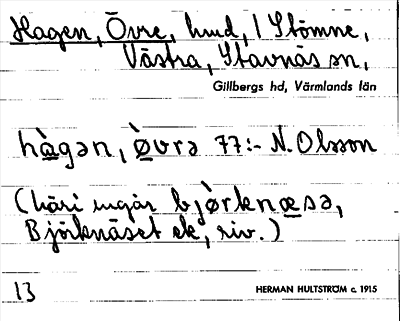 Hagen, Övre, hmd, I Stömne,
Västra, Stavnäs sn,
Gillbergs hd, Värmlands län
hàgən, òvrə 77:- N. Olsson
(häri ingår bjòrknæsə,
Björknäset ek, riv.)
13
HERMAN HULTSTRÖM c. 1915